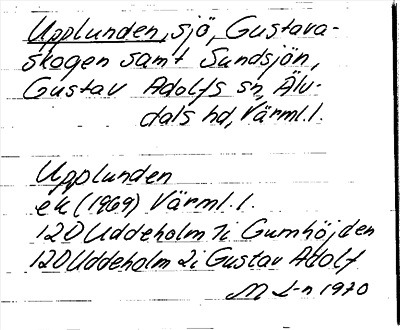 Upplunden, sjö, Gustava-
skogen samt Sundsjön,
Gustav Adolfs sn, Älv-
dals hd, Värml. l.
Upplunden
ek (1969) Värml. l.
12D Uddeholm 7i Gumhöjden
12D Uddeholm 2i Gustav Adolf
M L-n 1970